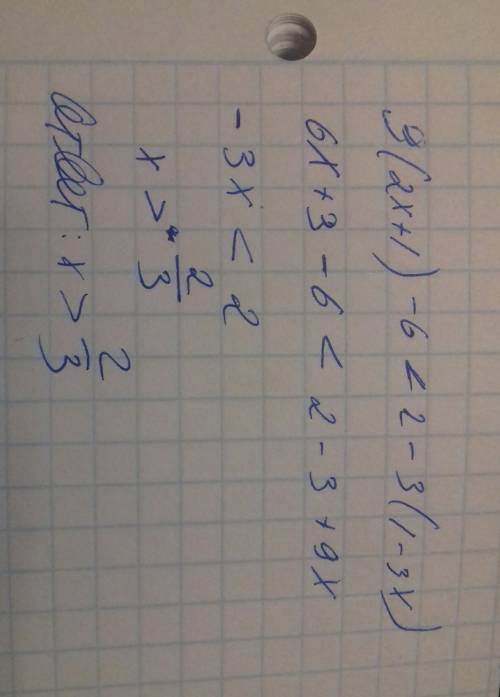 3(2x+1) -6 < 2 - 3(1-3x)
6x+3 - 6 < 2 - 3 + 9x
- 3x < 2
x > - 2/3
Ответ: x > 2/3